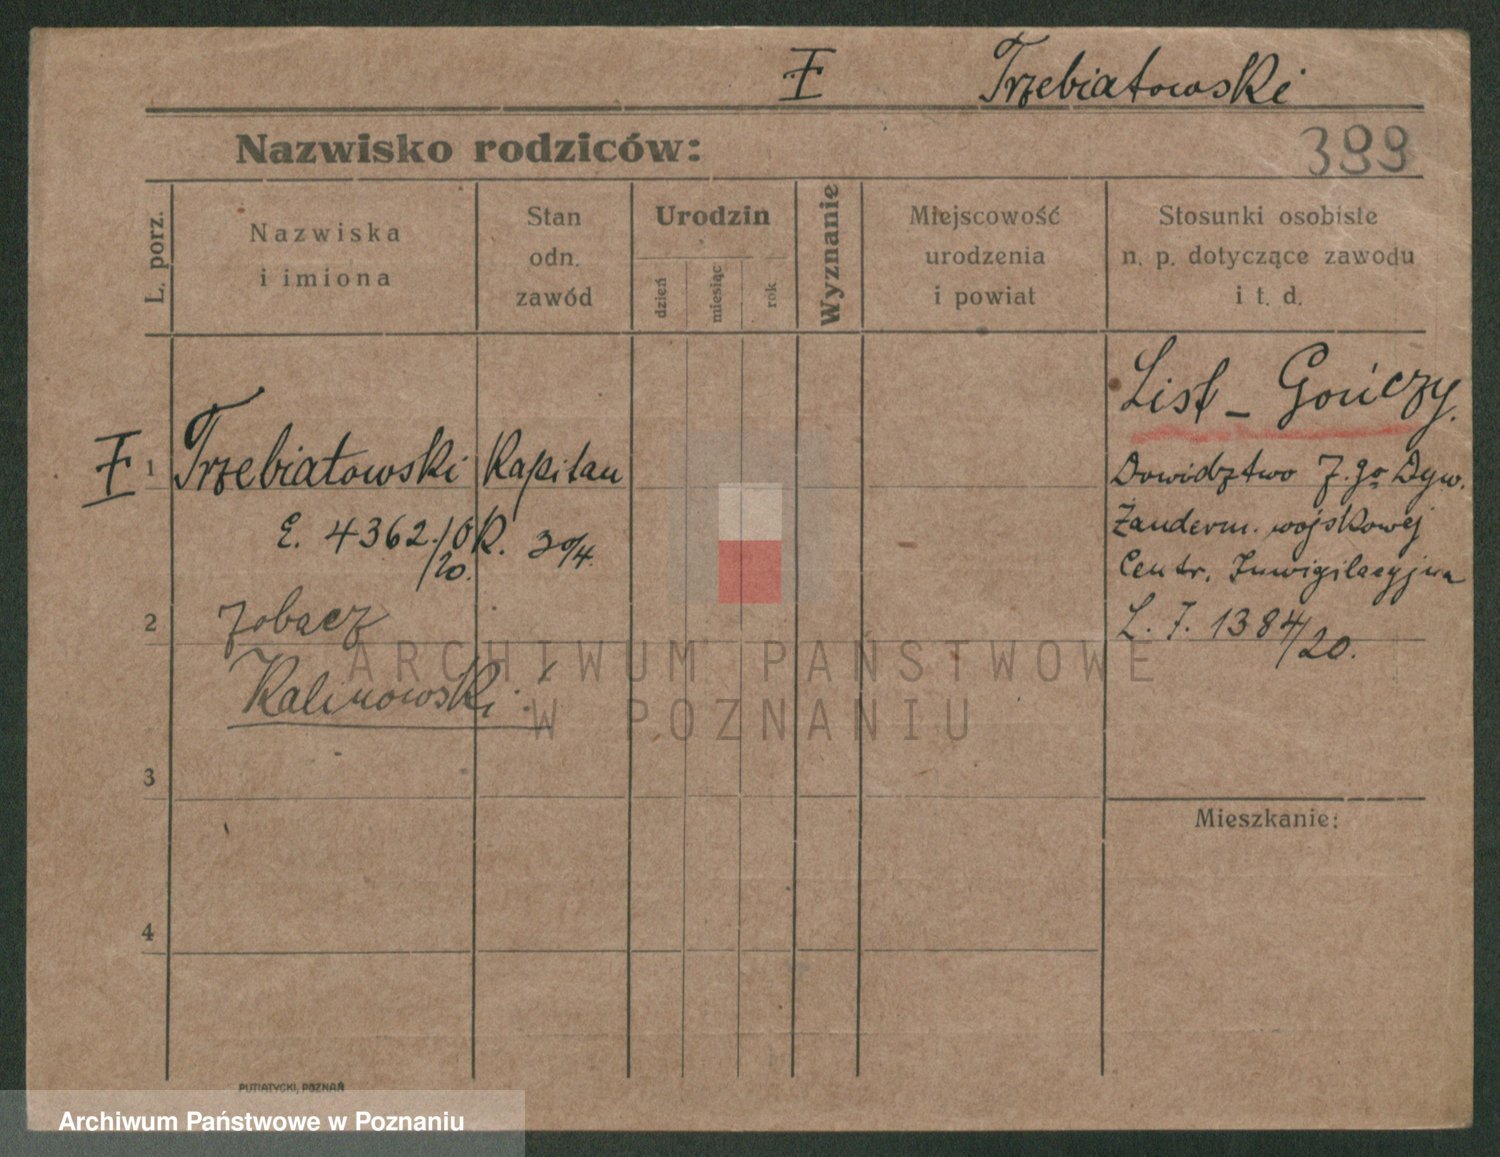 F Trzebiatowski
Nazwisko rodziców:
399
L. porz.
Nazwiska
i imiona
Stan
odn.
zawód
Urodzin
dzień
miesiąc
rok
Wyznanie
Miejscowość
urodzenia
i powiat
Stosunki osobiste
n. p. dotyczące zawodu
i t. d.
F 1 Trzebiatowski Kapitan
E. 4362./OK. 30/4.
/20.
2 zobacz
Kalinowski.
3
4
List - Gończy.
Dowidztwo 7.go Dyw.
Żanderm. wojskowej
Centr. Inwigilacyjna
L. 7. 1384/20.
Mieszkanie:
PUTIATYCKI, POZNAŃ
ARCHIWUM PAŃSTWOWE
W POZNANIU
Archiwum Państwowe w Poznaniu